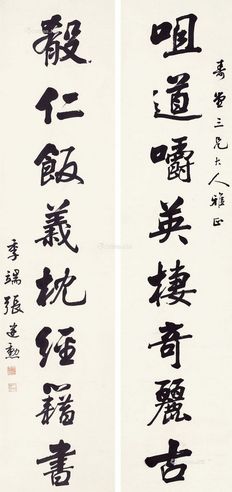 咀道嚼英棲奇麗古
三兄大人雅正
殽仁飯義枕經籍書
季端張建勳